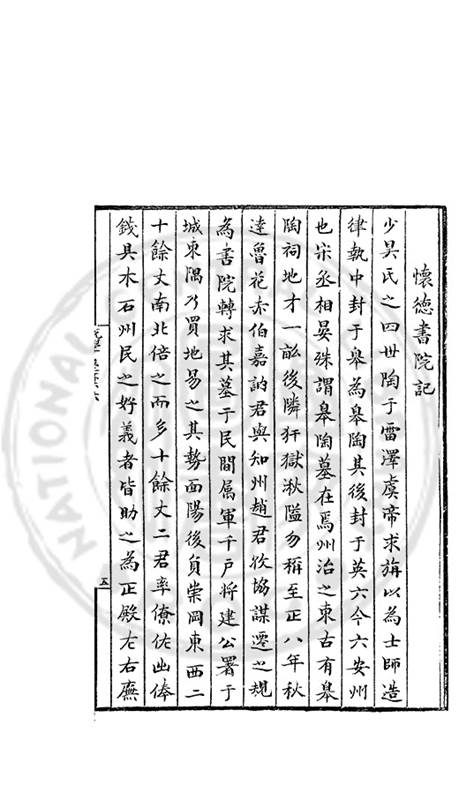 懷德書院記
少昊氏之四世陶于雷澤虞帝求旃以為士師造
律執中封于皋為皋陶其後封于英六今六安州
也宋丞相晏殊謂皋陶墓在焉州治之東古有皋
陶祠地才一畝後隣犴獄湫隘勿稱至正八年秋
達魯花赤伯嘉訥君與知州趙君攸協謀遷之規
為書院轉求其基于民間屬軍千戶將建公署于
城東隅乃買地易之其勢面陽後負崇岡東西二
十餘丈南北倍之而多十餘丈二君率僚佐出俸
錢具木石州民之好義者皆助之為正殿左右廡
五
NATIONAL